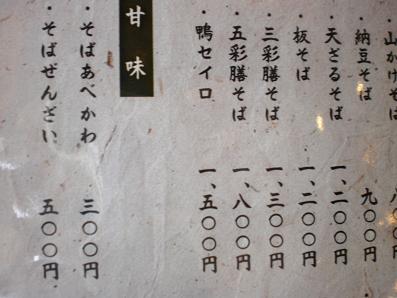 ・山かけそば 八〇〇円
・納豆そば 九〇〇円
・天ざるそば 一、二〇〇円
・板そば 一、二〇〇円
・三彩膳そば 一、三〇〇円
・五彩膳そば 一、八〇〇円
・鴨セイロ 一、五〇〇円
甘味
・そばあべかわ 三〇〇円
・そばぜんざい 五〇〇円